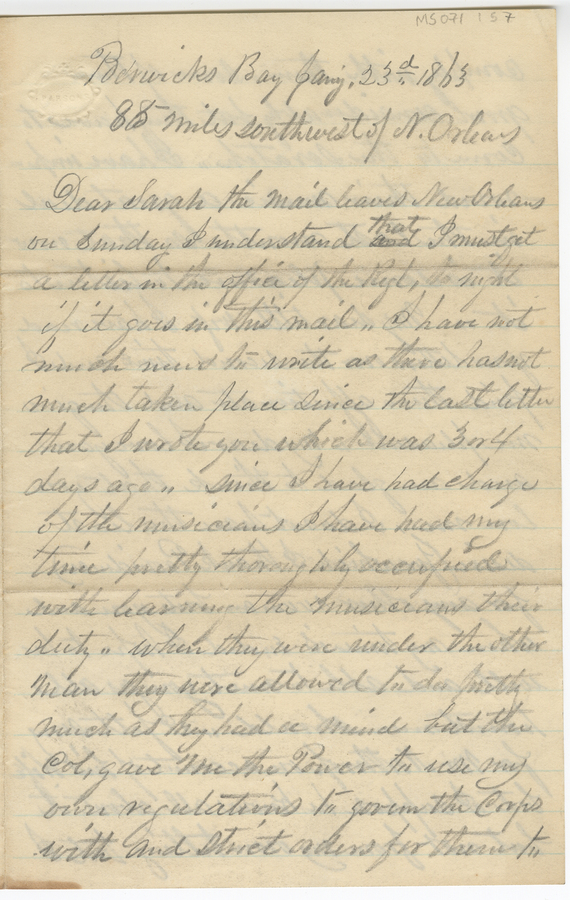 MS071 157
Berwicks Bay Jany, 23d 1863
85 miles southwest of N. Orleans
Dear Sarah the mail leaves New Orleans
on Sunday I understand that I must get
a letter in the office of the Regt, to night
if it goes in this mail,, I have not
much news to write as there has not
much taken place since the last letter
that I wrote you which was 3 or 4
days ago,, since I have had charge
of the musicians I have had my
time pretty thoroughly occupied
with learning the musicians their
duty,, when they were under the other
man they were allowed to do pretty
much as they had a mind but the
Col, gave me the Power to use my
own regulations to govern the Corps
with and strict orders for them to